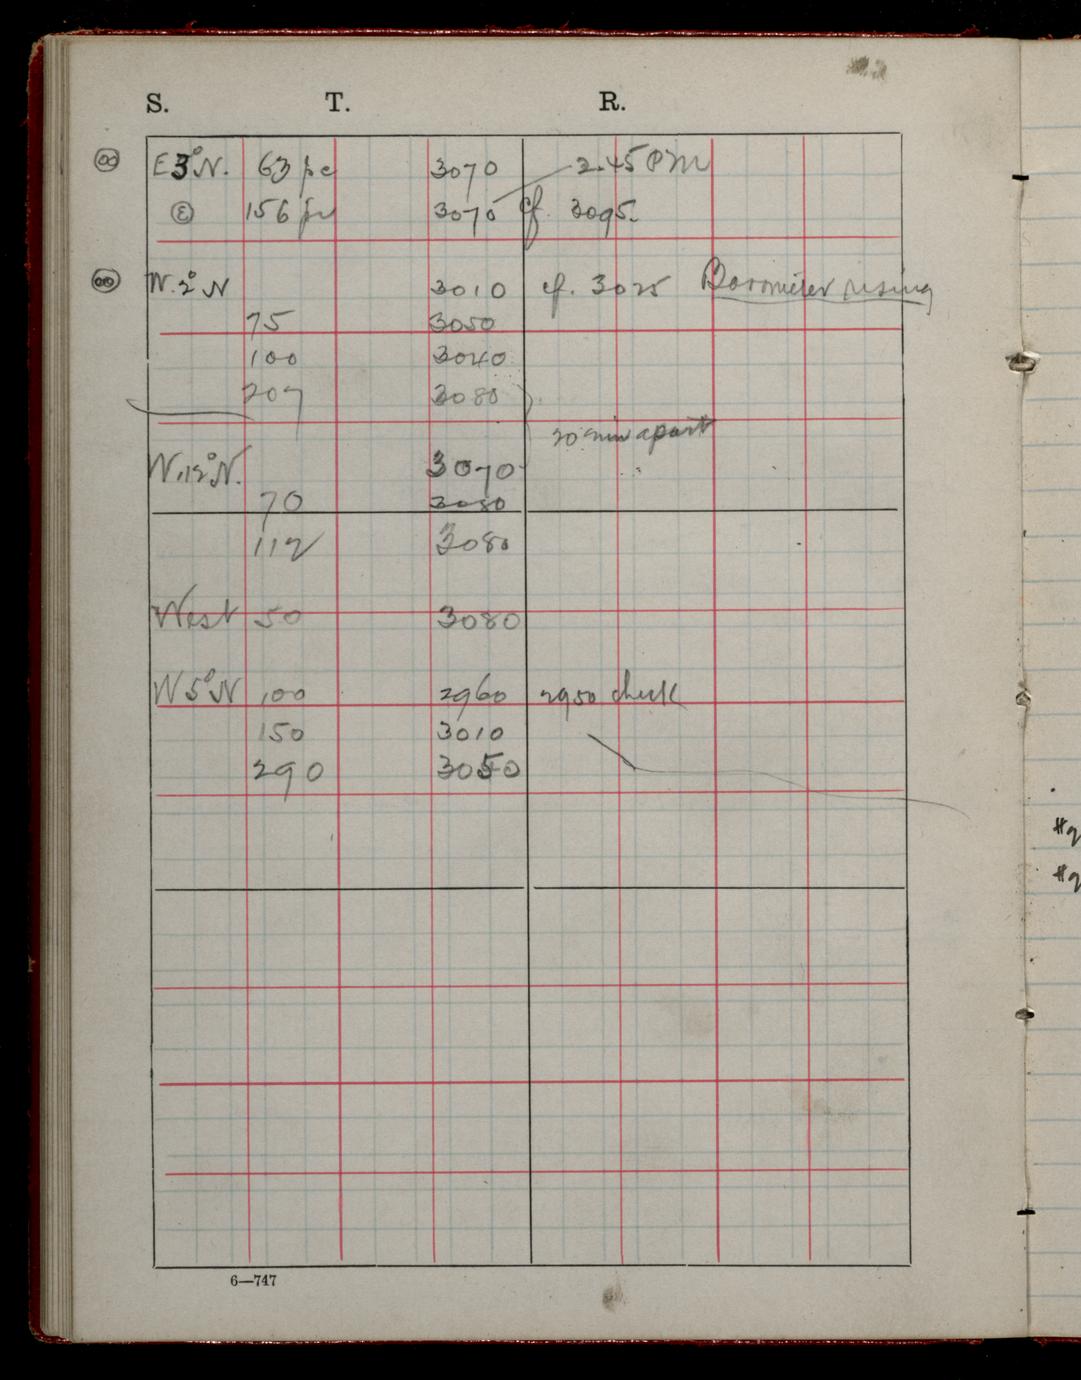 S. T. R.
E3°N. 63 pc 3070 2.45 PM
E 156 pc 3075 cf. 3095.
W.2°N 3010 cf. 3025 Barometer rising
75 3050
100 3040
207 3080
20 min apart
W.12°N. 3070
70 3080
112 3080
West 50 3080
W5°N 100 2960 2950 check
150 3010
290 3050
6—747